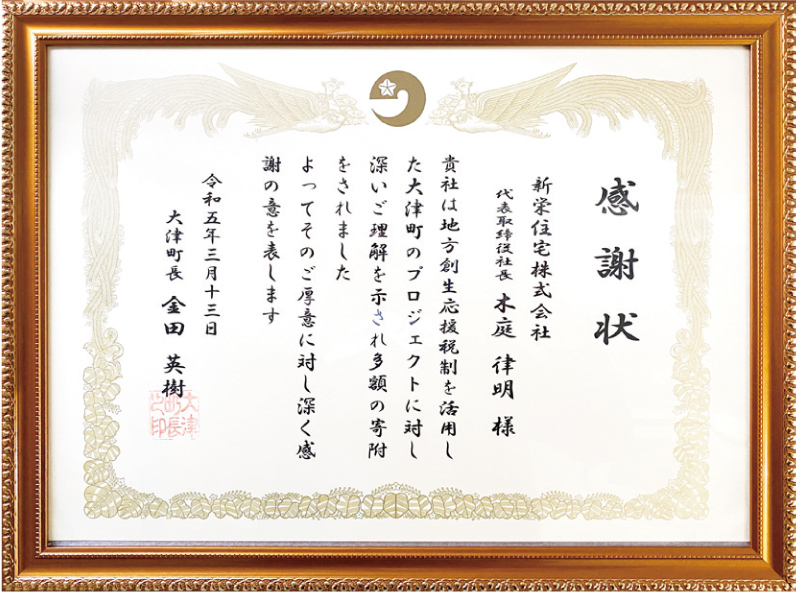 感謝状
新栄住宅株式会社
代表取締役社長 木庭 律明 様
貴社は地方創生応援税制を活用し
た大津町のプロジェクトに対し
深いご理解を示され多額の寄附
をされました
よってそのご厚意に対し深く感
謝の意を表します
令和五年三月十三日
大津町長 金田 英樹
大津
町長
之印